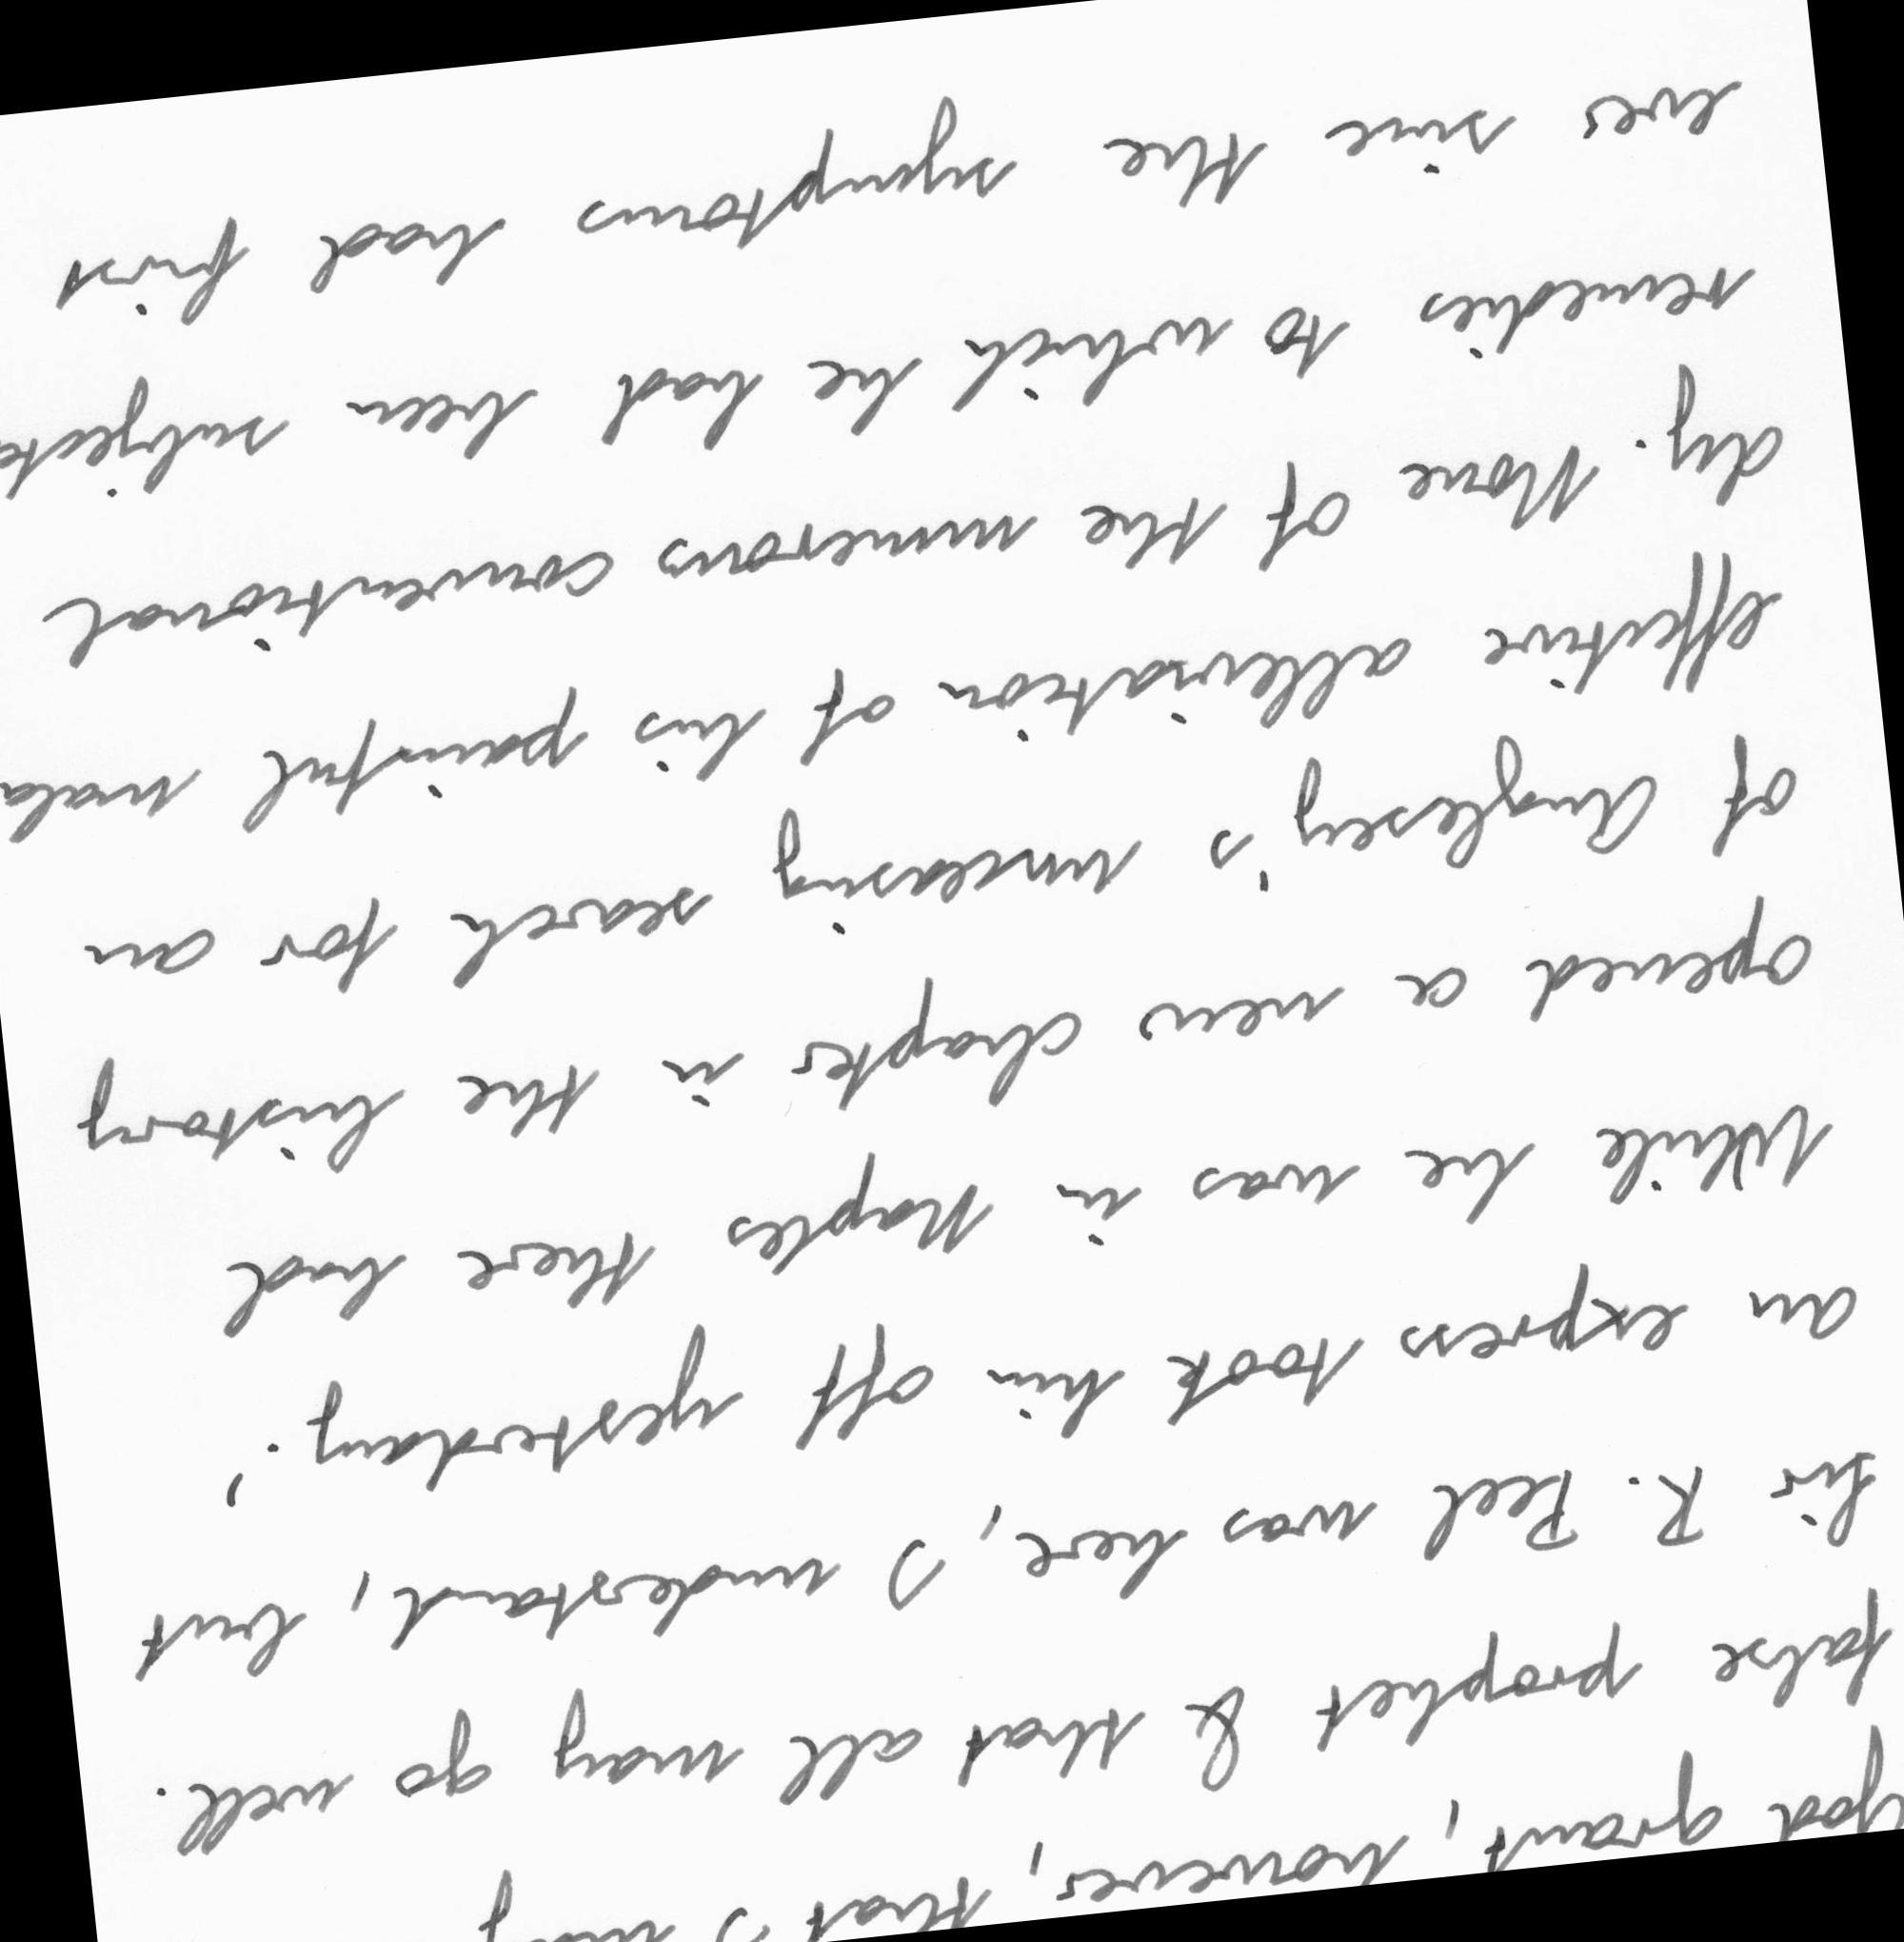 God grant, however, that I may
false prophet & that all may go well.
Sir R. Peel was here, I understand, but
an express took him off yesterday.'
While he was in Naples there had
opened a new chapter in the history
of Anglesey's unceasing search for an
effective alleviation of his painful mala
dy. None of the numerous conventional
remedies to which he had been subjecte
ever since the symptoms had first